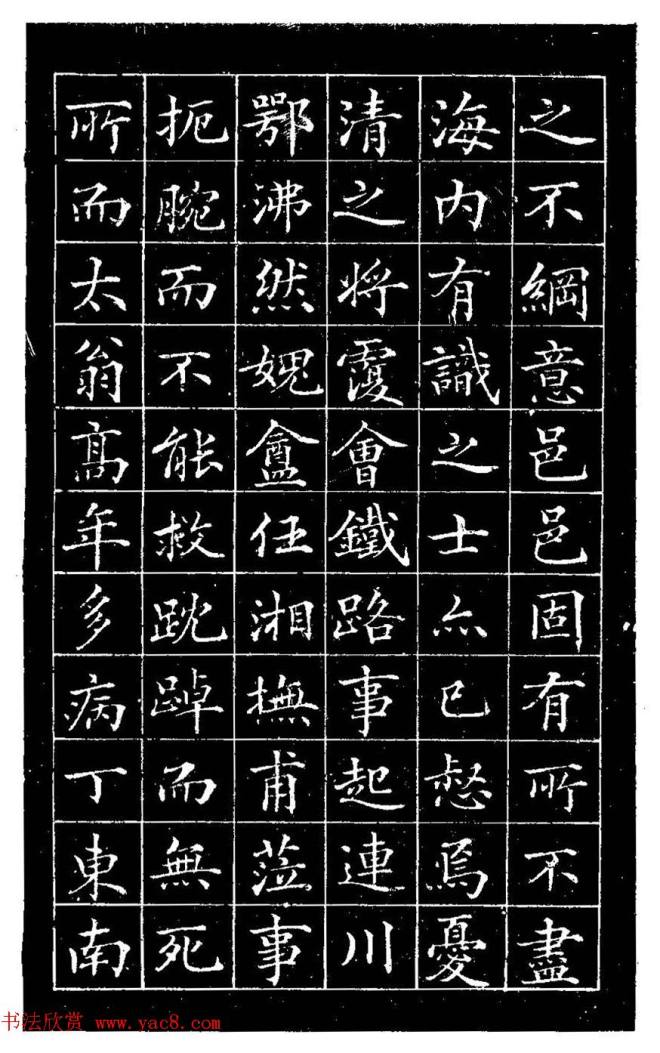 之不綱意邑邑固有所不盡
海内有識之士亦已惄焉憂
清之將覆會鐵路事起連川
鄂沸然媿盦任湘撫甫蒞事
扼腕而不能救踸踔而無死
所而太翁高年多病丁東南
书法欣赏 www.yac8.com